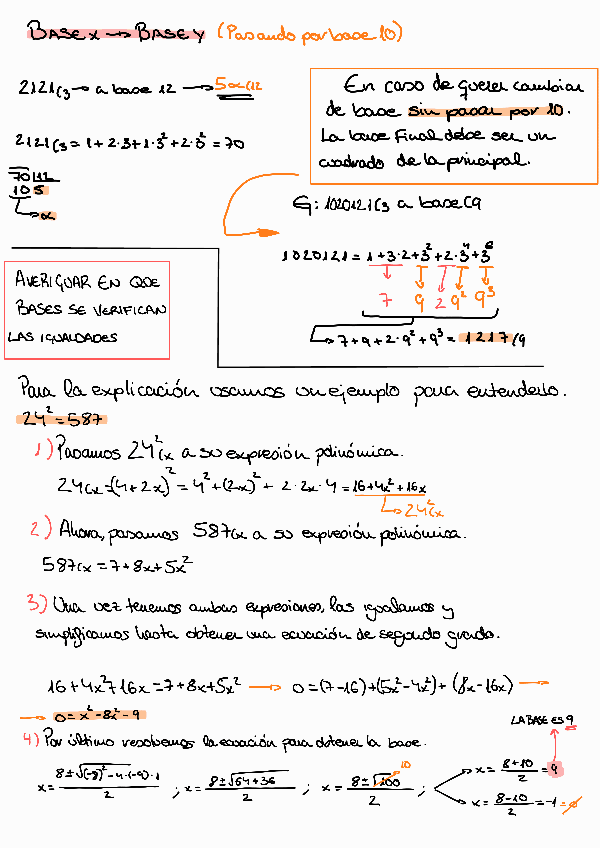 BASE X → BASE Y (Pasando por base 10)
2121(3 → a base 12 → 5α(12
2121(3 = 1 + 2·3 + 1·3² + 2·3³ = 70
70 12
10 5
↳ α
En caso de querer cambiar
de base sin pasar por 10.
La base final debe ser un
cuadrado de la principal.
EJ: 1020121(3 a base (9
1020121 = 1+3·2+3²+2·3⁴+3⁶
7 9 2 9² 9³
↳ 7+9+2·9²+9³ = 1217(9
AVERIGUAR EN QUE
BASES SE VERIFICAN
LAS IGUALDADES
Para la explicación usamos un ejemplo para entenderlo.
24² = 587
1) Pasamos 24²(x a su expresión polinómica.
24(x = (4+2x)² = 4² + (2x)² + 2·2x·4 = 16+4x²+16x
↳ 24²(x
2) Ahora, pasamos 587(x a su expresión polinómica.
587(x = 7+8x+5x²
3) Una vez tenemos ambas expresiones, las igualamos y
simplificamos hasta obtener una ecuación de segundo grado.
16+4x²+16x = 7+8x+5x² → 0=(7-16)+(5x²-4x²)+(8x-16x) →
→ 0 = x²-8x-9
LA BASE ES 9
4) Por último resolvemos la ecuación para obtener la base.
x = 8±√(-8)²-4·(-9)·1 / 2 ; x = 8±√64+36 / 2 ; x = 8±√100 / 2 ; x = 8+10 / 2 = 9
10
x = 8-10 / 2 = -1 = ∅